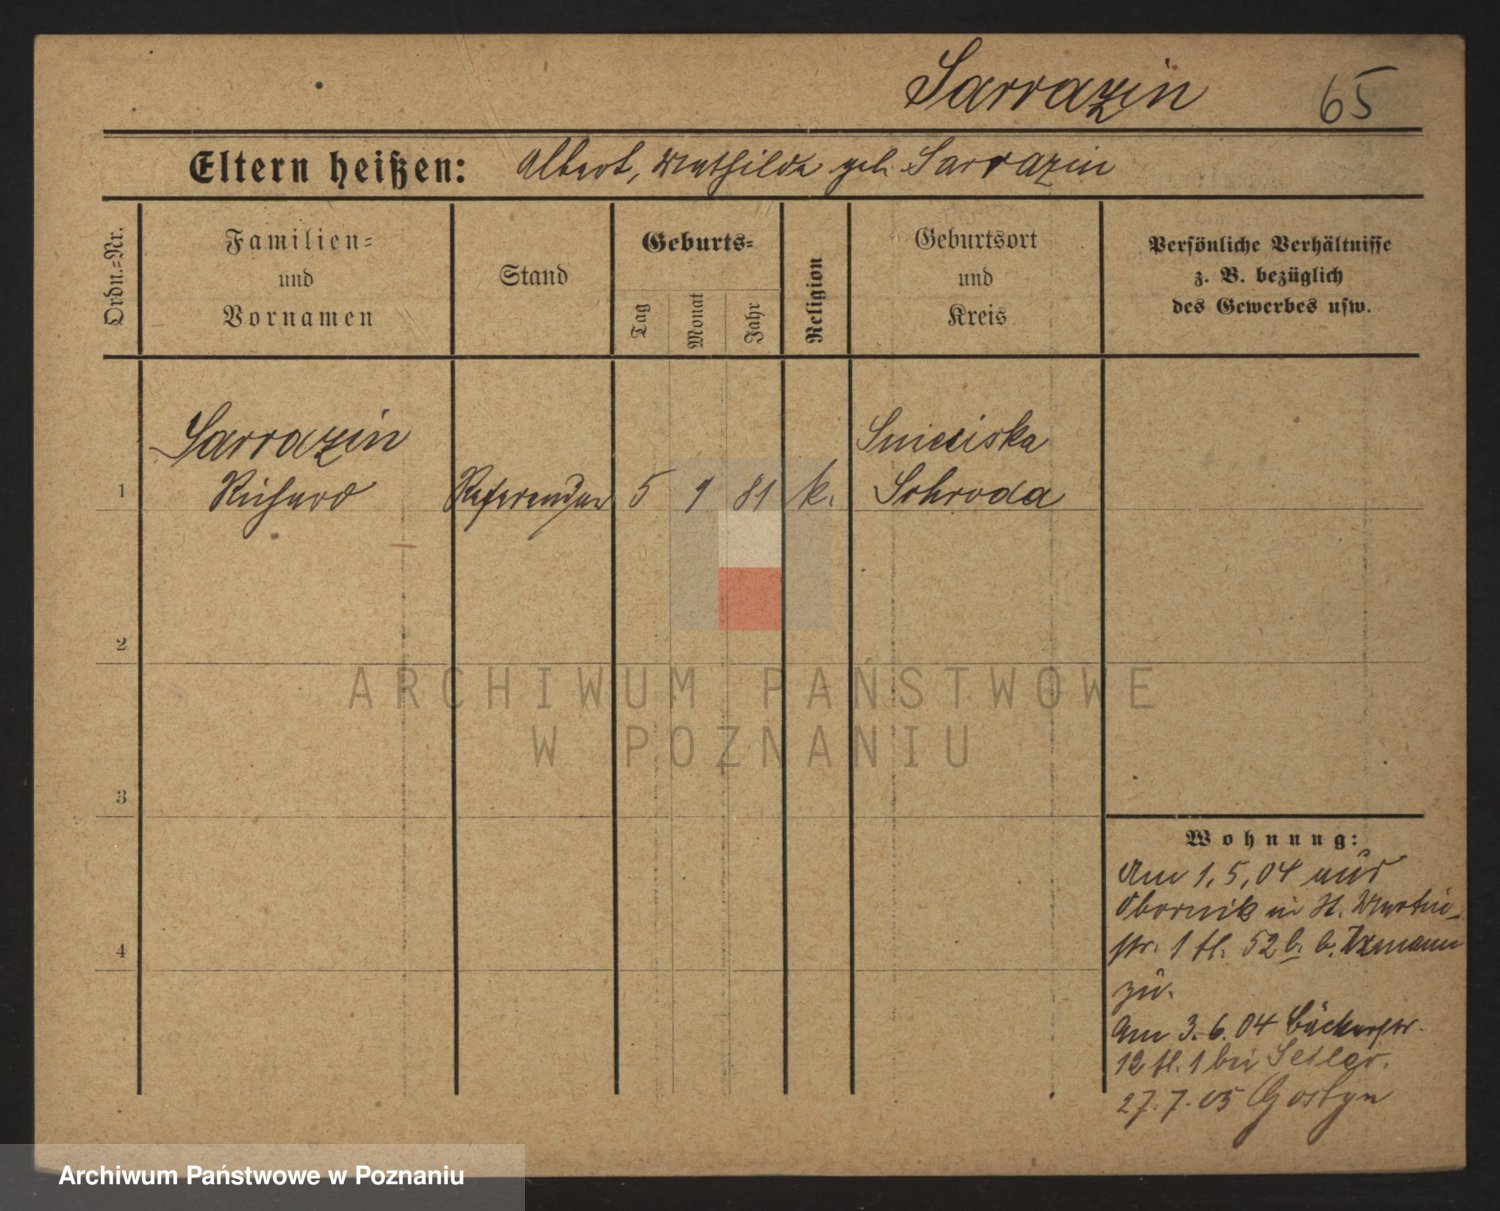 Sarrazin
65
Eltern heißen: Albert, Mathilde geb. Sarrazin
Ordn.-Nr.
Familien-
und
Vornamen
Stand
Geburts-
Tag
Monat
Jahr
Religion
Geburtsort
und
Kreis
Persönliche Verhältnisse
z. B. bezüglich
des Gewerbes usw.
Sarrazin
Sniciska
1 Richard Referendar 5 9 81 k. Schroda
2
ARCHIWUM PAŃSTWOWE
W POZNANIU
3
4
Wohnung:
Am 1.5.04 aus
Obornik in St. Martin-
str. 1 tl. 52 b. b.
zu.
Am 3.6.04 Bäckerstr.
12 tl. 1 bei
27.7.05 Gostyn
Archiwum Państwowe w Poznaniu